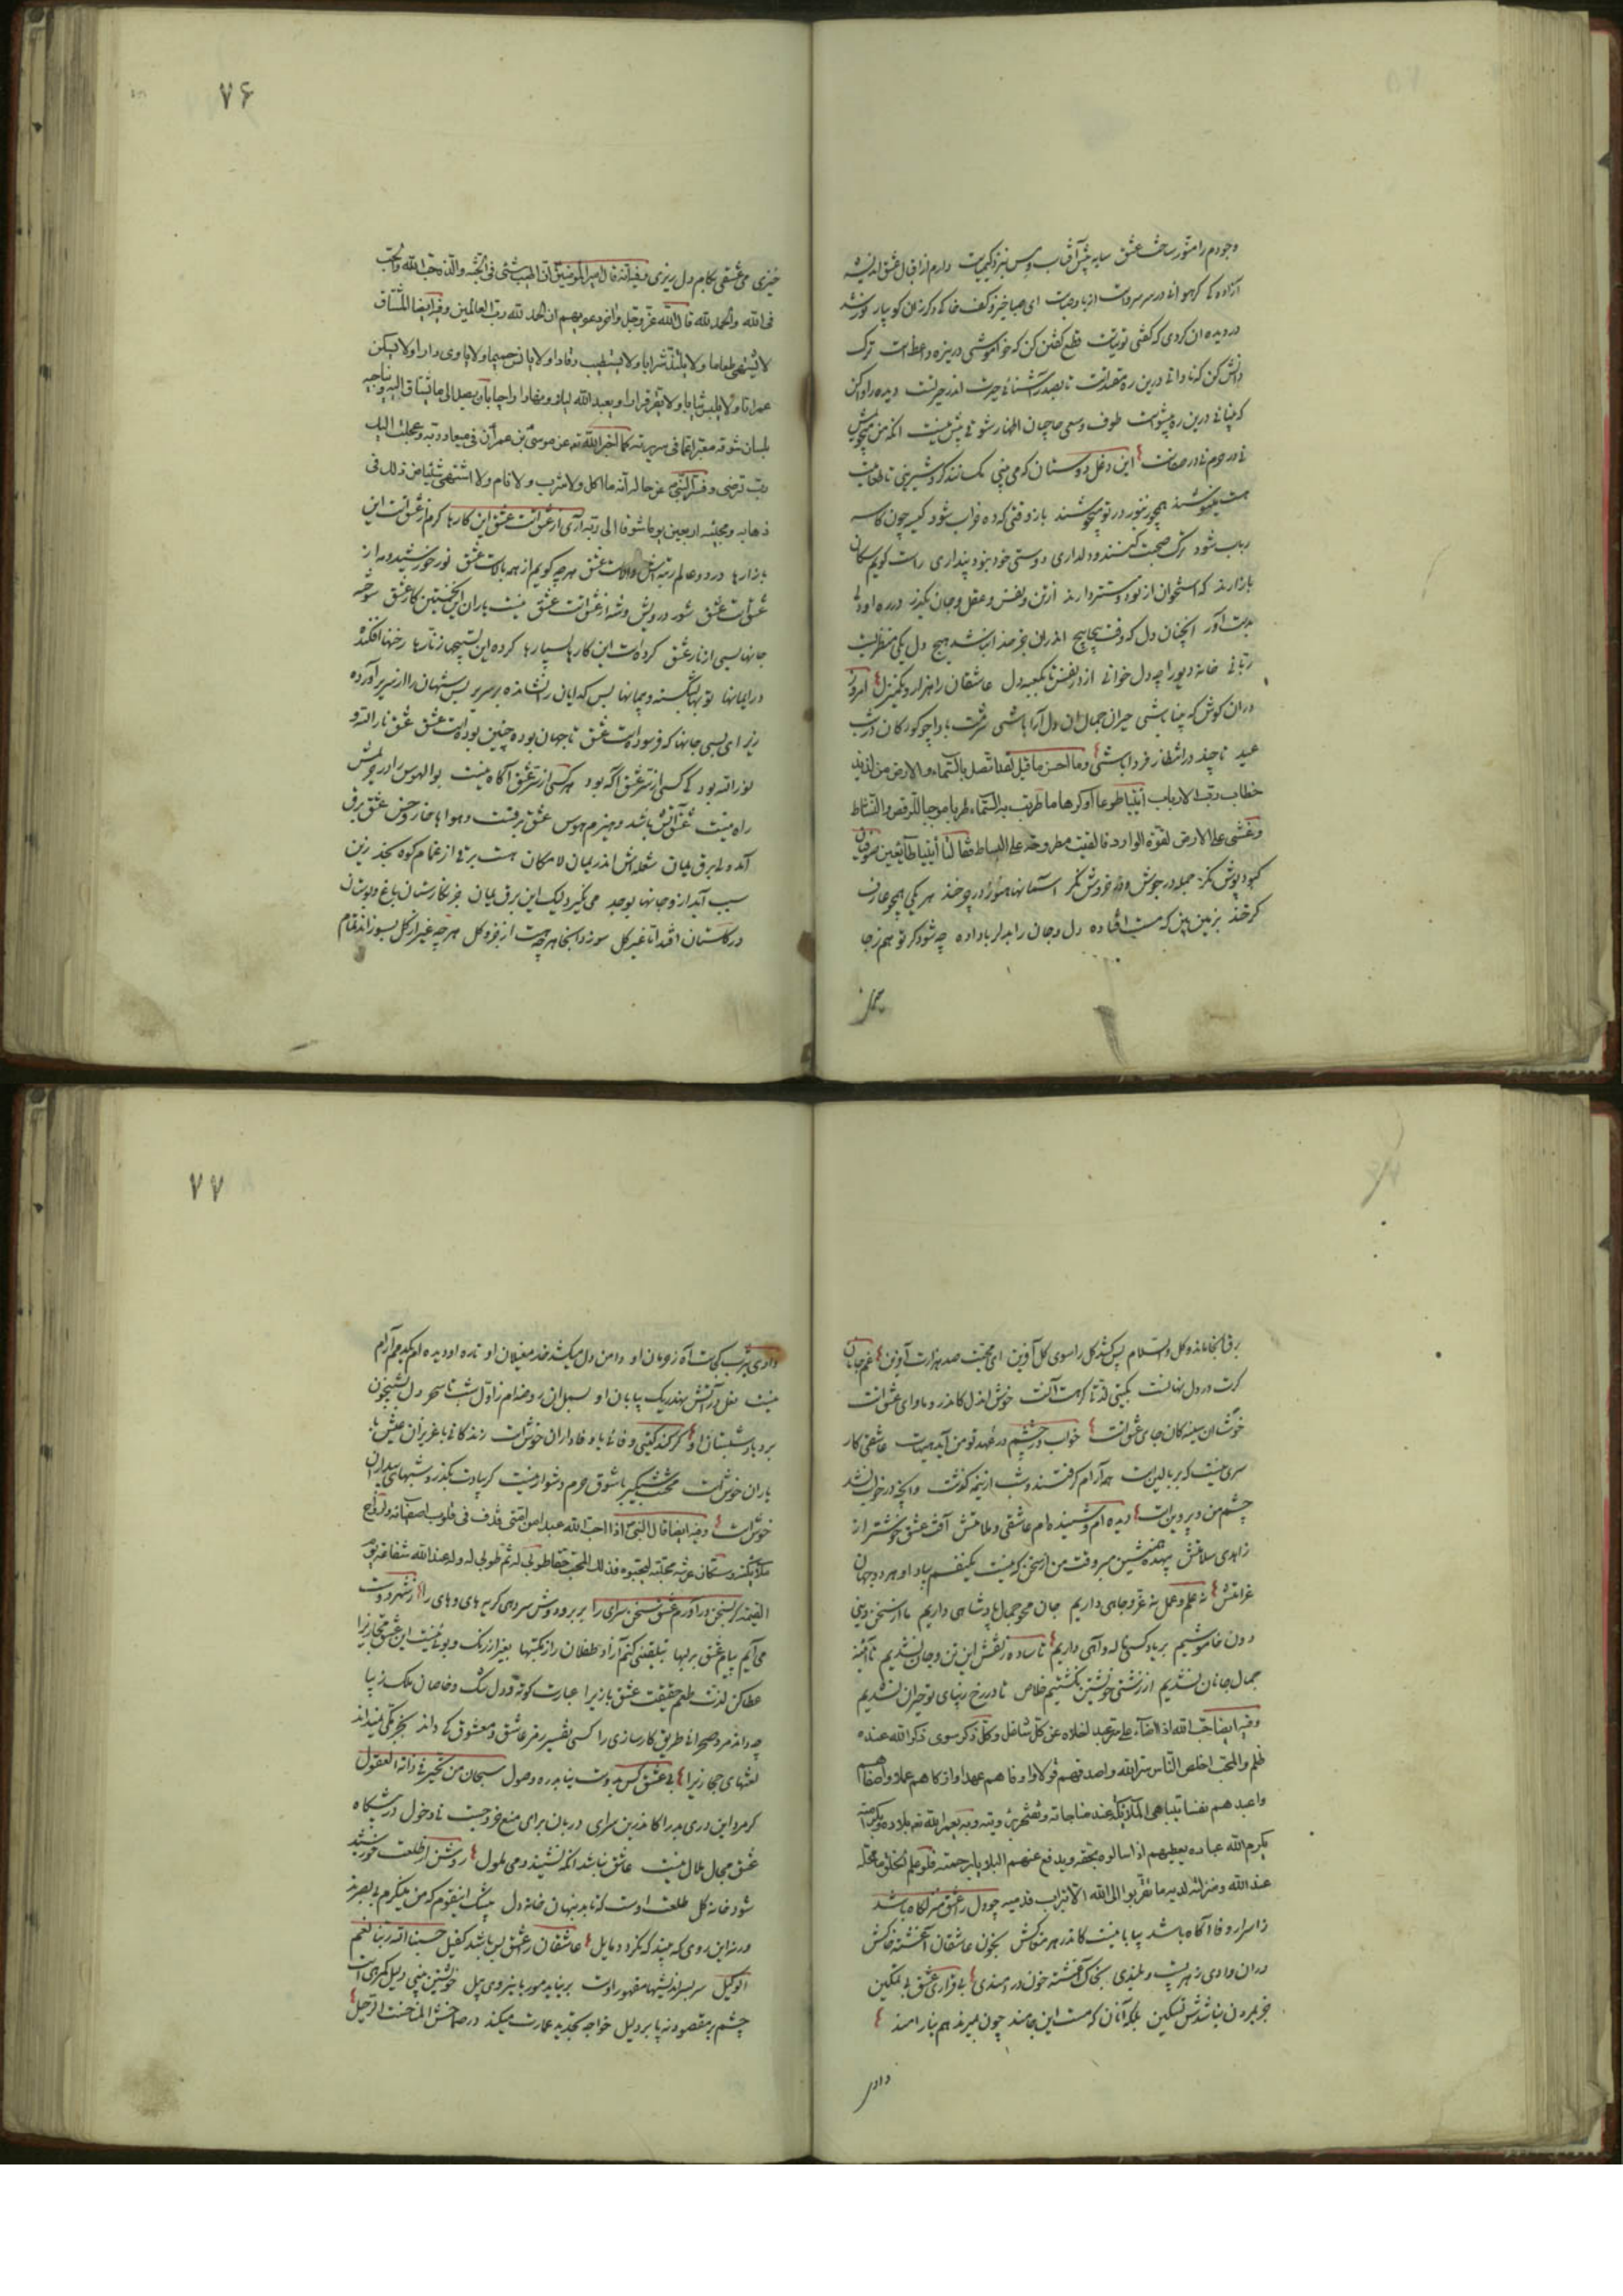 ۷۶
وجودم را متورساخت عشق سایه پیش آفتاب و مس نزد کیمیاست دارم از اقبال عشق اندیشه
آزاده کی کرهوا نه در سر سروست از باد صبا ای صبا خیز و کف خاکی دگر زان کو بیار
در دیده ان کردی که کفتی توتیاست قطع کفتن کن که خواموشی در
دانش کن که نادانی درین ره مقتداست تا بصدر آشنائی حیرت اندر حیرتست دیده را واکن
که بینائی درین ره پیشواست طوف وسعی حاجیان اظهار شوقی بیش نیست
نی در حرم نی در صفاست این دغل دوستان که می بینی مکسانند کرد شیرینی تا طعامیت
هست مینوشند همچو زنبور در تو میجوشند باز وقتی که ده خراب شود کیسه چون کاسه
رباب شود ترک صحبت کنند و دلداری دوستی خود نبود پنداری راست کویم سکان
بازارند که استخوان از تو دوستتر دارند از تن و نفس و عقل و جان بگذر در ره او دلی
بدست آور انچنان دل که وقت پیچاپیچ اندران جز خدا نباشد هیچ دل یکی منظریست
ربانی خانه دیو را چه دل خوانی از در نفس تا بکعبه دل عاشقان را هزار و یک منزل امروز
در ان کوش که بینا باشی حیران جمال ان دل آرا باشی شرمت بادا چو کودکان در شب
عید تا چند در انتظار فردا باشی وما احسن ما قیل لقد اتصل بالسماء والارض من لذیذ
خطاب رب الارباب أئتیا طوعا او کرها ما طربت به السماء طربا موجبا للرقص والنشاط
وغشی علی الارض لقوة الوارد فالقیت مطروحة علی البساط فقالتا أتینا طائعین صوفیان
کبود پوش نکر جمله در جوش و در خروش نکر آسمانها هنوز در چرخند هر یکی همچو عارف
کرخند بزمین بین که مست افتاده دل و جان را بدلربا داده چه شود کر تو هم ز جا
خیزی می عشقی بکام دل ریزی وفیه انه قال امیر المومنین ان اطیب شئ فی الجنة والذه حب الله والحب
فی الله والحمد لله قال الله عز وجل وآخر دعویهم ان الحمد لله رب العالمین وفیه ایضا المشتاق
لا یشتهی طعاما ولا یلتذ شرابا ولا یستطیب رقادا ولا یانس حمیما ولا یاوی دارا ولا یسکن
عمرانا ولا یلبس ثیابا ولا یقر قرارا ویعبد الله لیلا ونهارا راجیا بان یصل الی ما یشتاق الیه ویناجیه
بلسان شوقه معبرا عما فی سریرته کما اخبر الله تعه عن موسی بن عمران فی میعاد ربه وعجلت الیک
رب لترضی وفسر النبی عن حاله انه ما اکل ولا شرب ولا نام ولا اشتهی شیئا من ذلک فی
ذهابه ومجیئه اربعین یوما شوقا الی ربه آری آری از عشق است عشق این کارها کرم از عشق است این
بازارها در دو عالم رتبه والاست عشق هر چه کویم از همه بالاست عشق نور خورشید و مه از
عشق است عشق شور درویش و شه از عشق است عشق نیست یاران این نخستین کار عشق سوخته
جانها بسی از نار عشق کرده است این کارها بسیارها کرده این تسبیحها زنارها رخنها افکنده
در ایمانها توبها بشکسته و پیمانها بس کدایان را نشانده بر سریر بس شهان را از سریر آورده
زیر ای بسی جانها که فرسوده است عشق تا جهان بوده چنین بوده است عشق عشق نارالله و
نورالله بود کی کسی از سر عشق آکه بود هر کسی از سر عشق آگاه نیست بوالهوس را در حریمش
راه نیست عشق آتش باشد و هیزم هوس عشق برقست و هواها خار و خس عشق برقی
آمده از برق یمان شعله اش اندر یمان لامکان هست برقی از غمام کوه نجد زین
سبب آید از و جانها بوجد می نکیرد لیک این برق یمان جز نکارستان باغ و بوستان
در کلستان افتد اما غیر کل سوزد انجا هر چه هست از جزو و کل هر چه غیر از کل بسوزاند تمام
۷۷
برق انجا ماند و کل والسلام پس کشد کل را سوی کل آفرین ای محبت صد هزارت آفرین غم جانان
کرت در دل نهانست بکیتی لذتا کرهست آنست خوش اندل کاندرو ماوای عشق است
خوشا ان سینه کان جای عشق است خواب در چشم در عهد تو من آید هیهات عاشقی کار
سری نیست که بر بالین است همه آرام کرفتند و شب از نیمه کذشت وانچه در خواب نشد
چشم من و پروین است دیده ام و شنیده ام عاشقی و ملامتش آفت عشق خوشتر از
زاهدی و سلامتش بیهده همنشین مبر وقت من از سخن که نیست یکنفسم بیاد او هر دو جهان
غرامتش نه علم و عمل نه عز و جاهی داریم جان محو جمال پادشاهی داریم ما از سخن دینی
و دون خاموشیم بر یاد کسی ناله و آهی داریم تا ساده ز نقش این تن و جان نشدیم تا آینه
جمال جانان نشدیم از زشتی خویشتن نکشتیم خلاص تا در رخ زیبای تو حیران نشدیم
وفیه ایضا حب الله اذا اضاء علی سر عبد اخلاه عن کل شاغل وکل ذکر سوی ذکر الله عنده
ظلم والمحب اخلص الناس سرا لله واصدقهم قولا واوفاهم عهدا وازکاهم عملا واصفاهم
واعبدهم نفسا تتباهی الملائکة عند مناجاته وتفتخر برؤیته وبه یعمر الله تعه بلاده وبکرامته
یکرم الله عباده یعطیهم اذا سالوه بحقه ویدفع عنهم البلایا برحمته فلو علم الخلق ما محله
عند الله ومنزلته لدیه ما تقربوا الی الله الا بتراب قدمیه چو دل را عشق منزلگاه باشد
ز اسرار وفا آگاه باشد بیابانیست کاندر هر مغاکش بخون عاشقان آغشته خاکش
در ان وادی ز هر پست و بلندی بخاک آغشته خون دردمندی بی قراری عشق بی تمکین
جز بمردن نباشدش تسکین بلکه آنان که مست این جامند چون بمیرند هم نیارامند
وادی
وادی یثرب کجاست آه ز حرمان او دامن دل میکشد خار مغیلان او تا ره او دیده ام یکدمم آرام
نیست نعل در آتش نهند ریک بیابان او
برد یاد شبستان او کر کند کیتی وفائی با وفاداران خوش است زندکانی با عزیزان عیش با
یاران خوش است محنت شبکیر با شوق حرم دشوار نیست کر بیادت بکذرد شبهای بیداران
خوش است وفیه ایضا قال النبی اذا احب الله عبدا من امتی قذف فی قلوب اصفیائه وارواح
ملائکته وسکان عرشه محبته لیحبوه فذلک المحب حقا طوبی له ثم طوبی له وله عند الله شفاعة یوم
القیمة کر بسخن در آورم عشق سخن سرای را بر بر و دوش سر دهی کریه های و های را از شهر دوست
می آیم پیام عشق بر لبها
عطا کن لذت طعم حقیقت عشق بازی را عبارت کوته و دل تنک و خاصان ملک زیبا
چه داند مرد صحرائی طریق کارسازی را کسی تفسیر رمز عاشق و معشوق کی داند بجز مکی نمیداند
لغتهای حجازی را بی عشق کس بدوست نیابد ره وصول سبحان من تحیر فی ذاته العقول
کرمرد این دری بدر آ کاندرین سرای دربان برای منع خروجست نا دخول در پیشگاه
عشق مجال ملال نیست عاشق نباشد آنکه نشیند دمی ملول روشن از طلعت خورشید
شود خانه کل طلعت اوست که تابد بنهان خانه دل
ورنه این روی که بیند که نکردد مایل عاشقان را عشق بس باشد کفیل حسبنا الله ربنا نعم
الوکیل سربسر اندیشها مقهور اوست بر نیاید مور با نیروی پیل خویشتن بینی دلیل کمرهی است
چشم بر مقصود نه پا بر دلیل خواجه تجدید عمارت میکند در صماخش